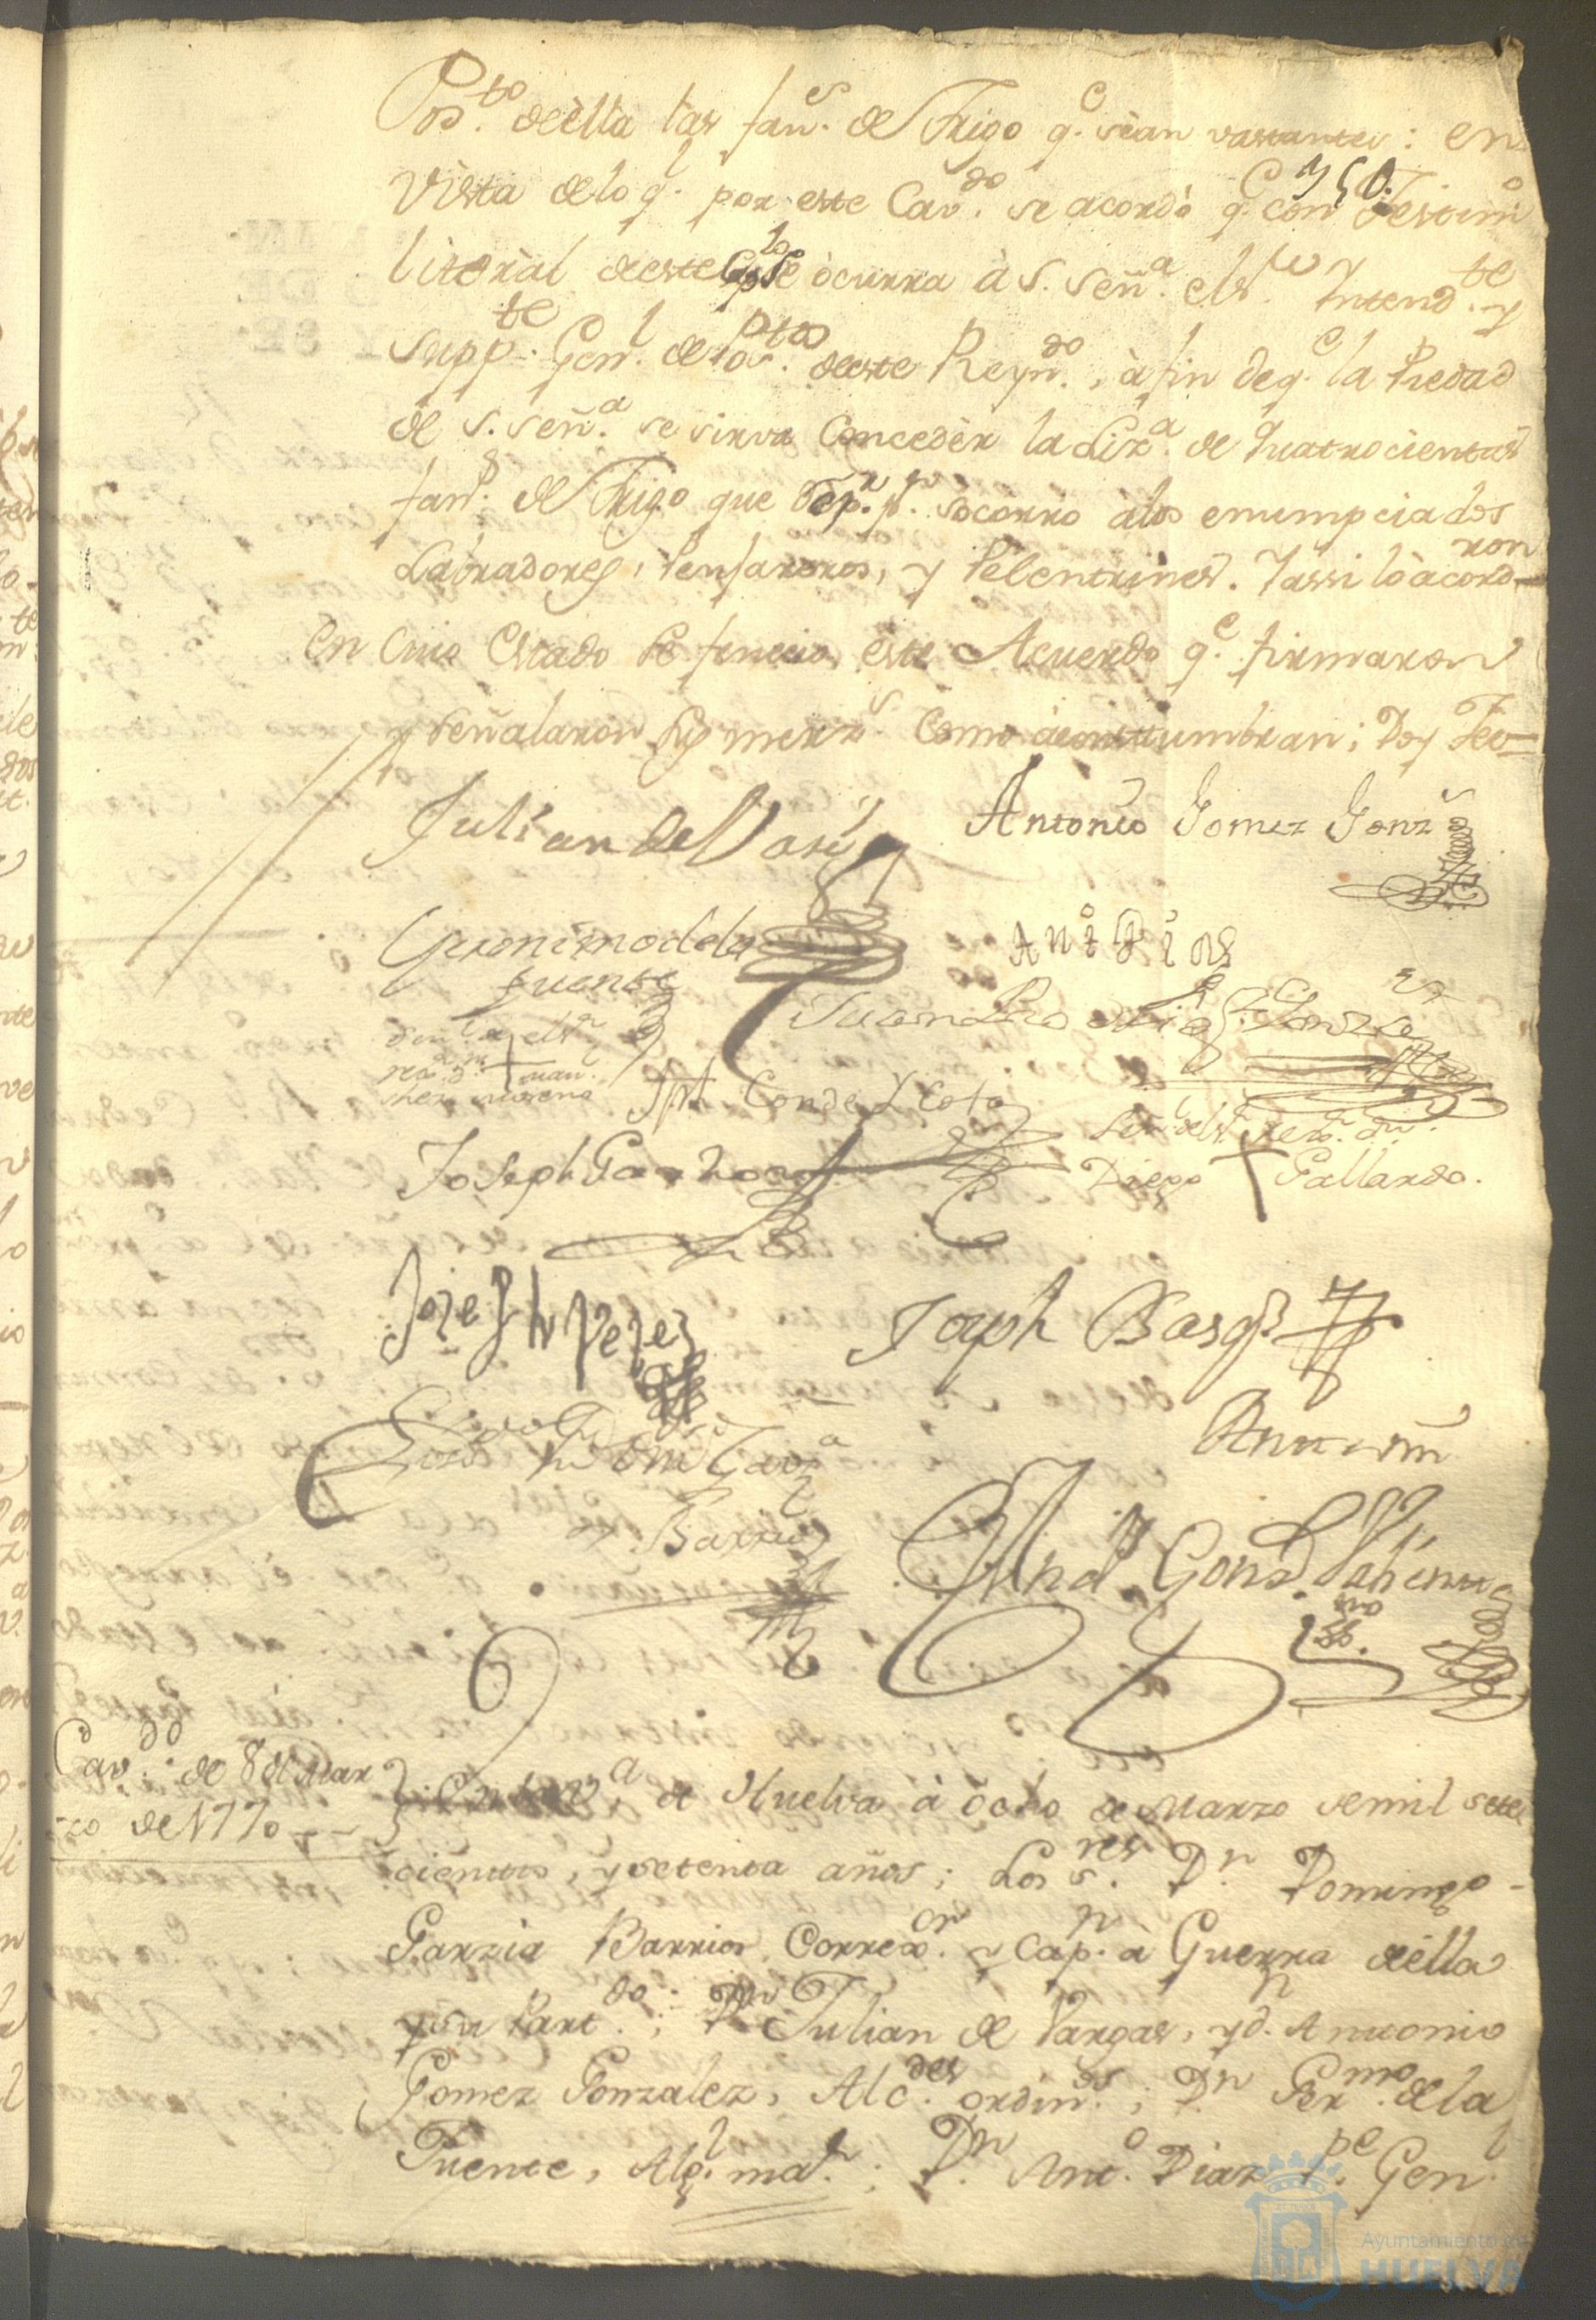 Pos.to de ella las fan.s de Trigo q.e sean vastantes: en
vista de lo q.l por este Cav.do se acordò q.e con Testim.o
750.
literàl de este se òcurra à S. Señ.a el S.or Yntend.te y
Supp.te Gen.l de Pos.tos de este Reyn.do, à fin de q.e la Piedad
de S. Señ.a se sirva Concedèr la Liz.a de quatrocientas
fan.s de Trigo que p.a socorro à los enumpciados
Labradores, Pensareros, y Pelentrines. Y assi lo àcordaron
En cuio Estado se fenecio este Acuerdo q.e firmaron
y señalaron sus merz.s Como àcostumbran; Doy Fee=
Julian de Vargas
Antonio Gomez Gonz.z
Geronimo de la
fuente
Ant.o Diaz
Juan
Señal del S.r
rex.or d.n + Man.l
moreno
Jph Conde y Cota
Señ.l del S.r rex.or d.n
Diego + Gallardo.
Joseph Garzon
Joseph Perez
Joseph Basq.z
Garz.a
y Barrios
Ante mi
And.s Gonz.
ss.no
Cav.do de 8 de Mar
zo de 1770
En la v.a de Huelva à òcho de Marzo de mil sete
cientos, y setenta años; Los S.res D.n Domingo
Garzia Barrios Correx.or y Cap.n à Guerra de ella
y su Part.do; D.n Julian de Vargas, y d.n Antonio
Gomez Gonzalez, Alc.des ordin.s; D.n Ger.mo de la
Fuente, Alg.l ma.r; D.n Ant.o Diaz P.e Gen.l
Ayuntamiento de
HUELVA